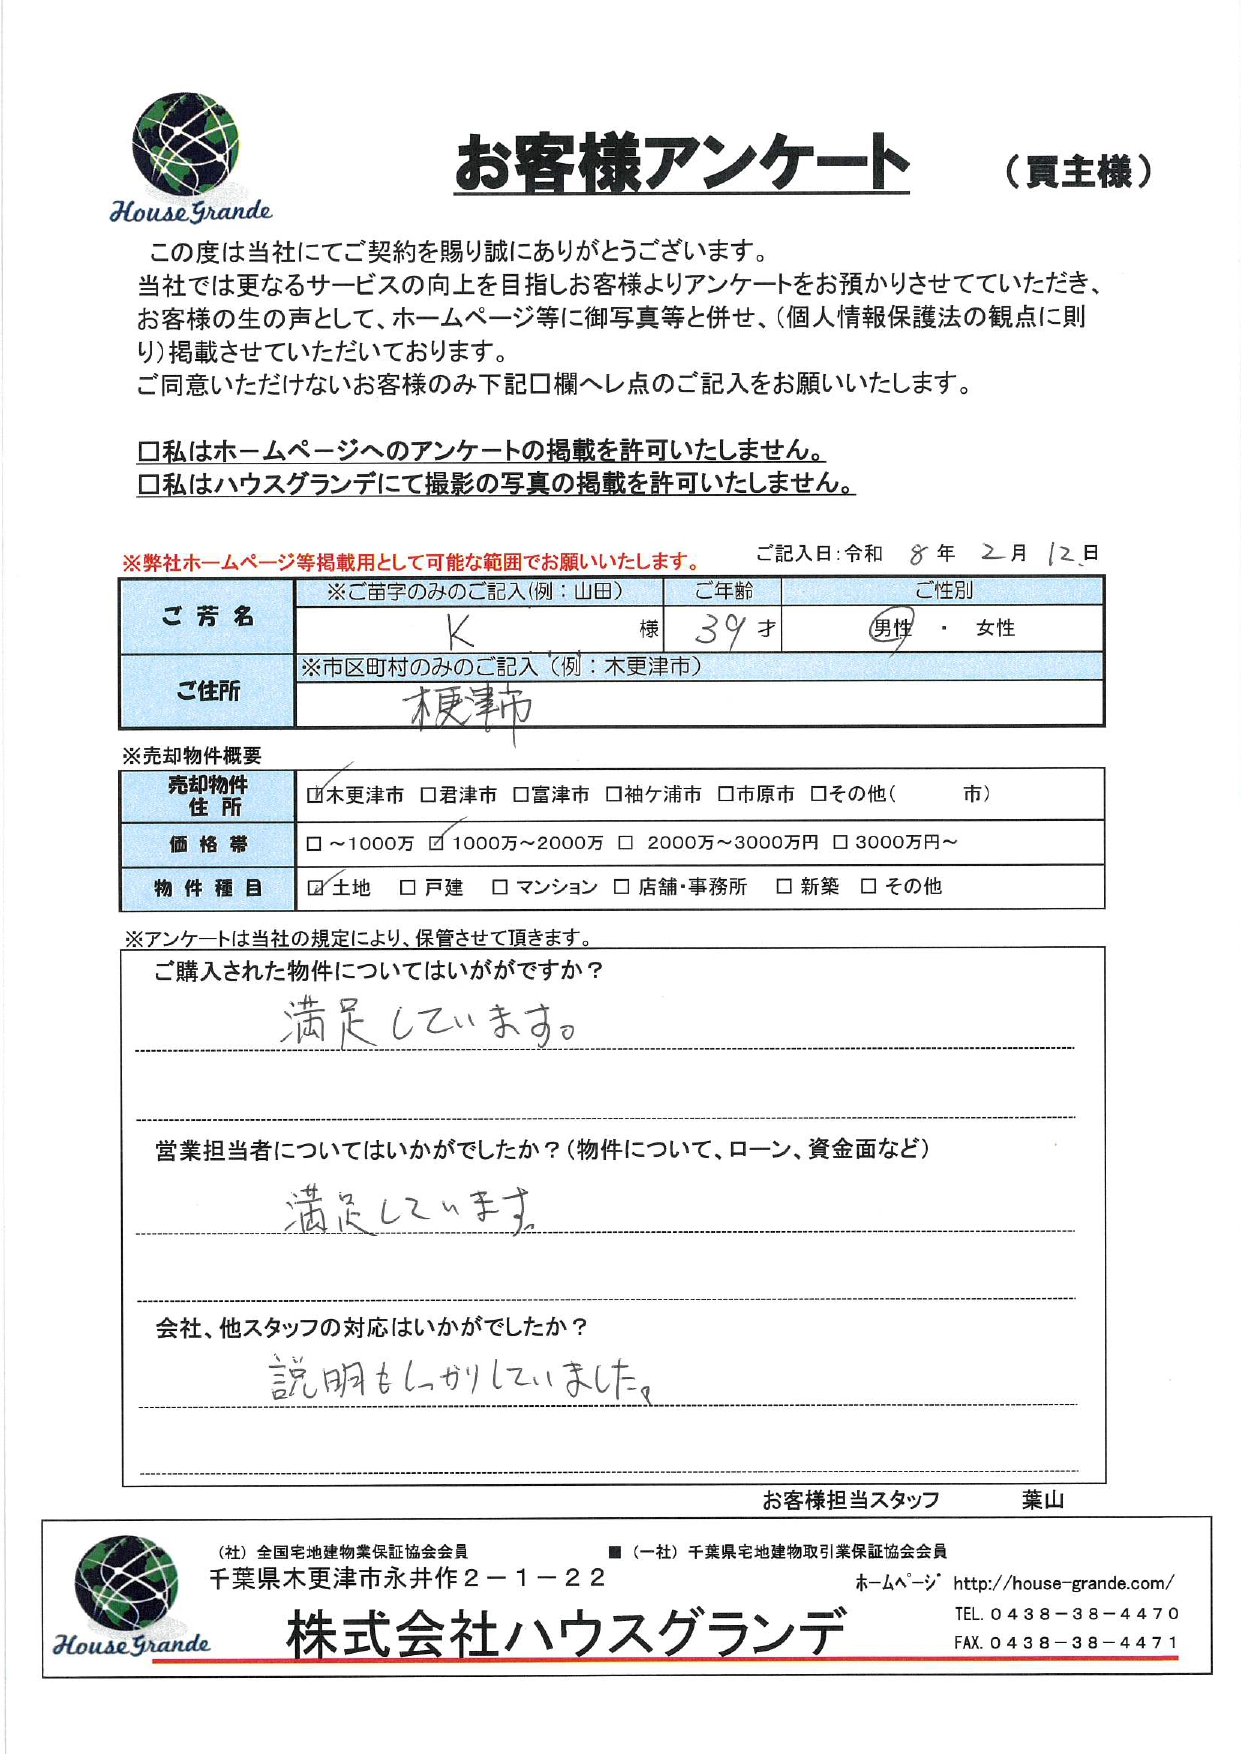 House Grande
お客様アンケート （買主様）
この度は当社にてご契約を賜り誠にありがとうございます。
当社では更なるサービスの向上を目指しお客様よりアンケートをお預かりさせてていただき、
お客様の生の声として、ホームページ等に御写真等と併せ、（個人情報保護法の観点に則
り）掲載させていただいております。
ご同意いただけないお客様のみ下記口欄へレ点のご記入をお願いいたします。
□私はホームページへのアンケートの掲載を許可いたしません。
□私はハウスグランデにて撮影の写真の掲載を許可いたしません。
※弊社ホームページ等掲載用として可能な範囲でお願いいたします。 ご記入日:令和 8 年 2 月 12 日
ご芳名 ※ご苗字のみのご記入(例：山田） ご年齢 ご性別
K 様 39 才 男性 ・ 女性
ご住所 ※市区町村のみのご記入（例：木更津市）
木更津市
※売却物件概要
売却物件住所 ☑木更津市 □君津市 □富津市 □袖ケ浦市 □市原市 □その他( 市）
価格帯 □ ～1000万 ☑ 1000万～2000万 □ 2000万～3000万円 □ 3000万円～
物件種目 ☑ 土地 □ 戸建 □ マンション □ 店舗・事務所 □ 新築 □ その他
※アンケートは当社の規定により、保管させて頂きます。
ご購入された物件についてはいががですか？
満足しています。
営業担当者についてはいかがでしたか？（物件について、ローン、資金面など）
満足しています。
会社、他スタッフの対応はいかがでしたか？
説明もしっかりしていました。
お客様担当スタッフ 葉山
（社）全国宅地建物業保証協会会員 ■（一社）千葉県宅地建物取引業保証協会会員
千葉県木更津市永井作２－１－２２ ﾎｰﾑﾍﾟｰｼﾞ http://house-grande.com/
株式会社ハウスグランデ
TEL.０４３８－３８－４４７０
FAX.０４３８－３８－４４７１
House Grande